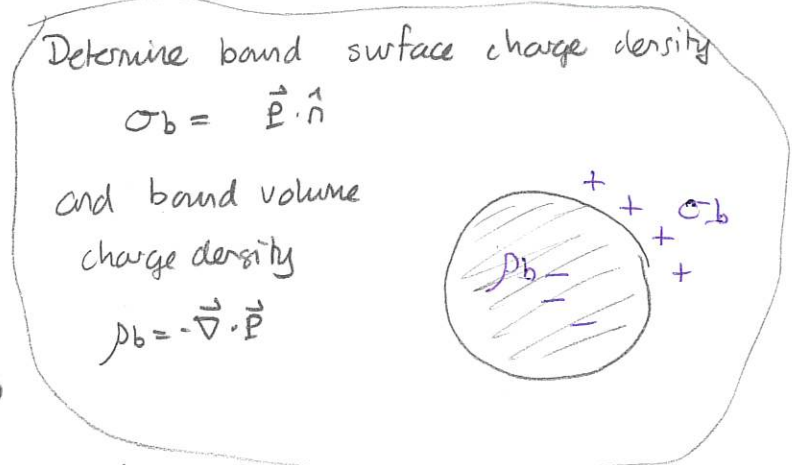 Determine bound surface charge density
σb = P⃗ · n̂
and bound volume
charge density
ρb = - ∇⃗ · P⃗
+ + σb
+
+
ρb -
-
-